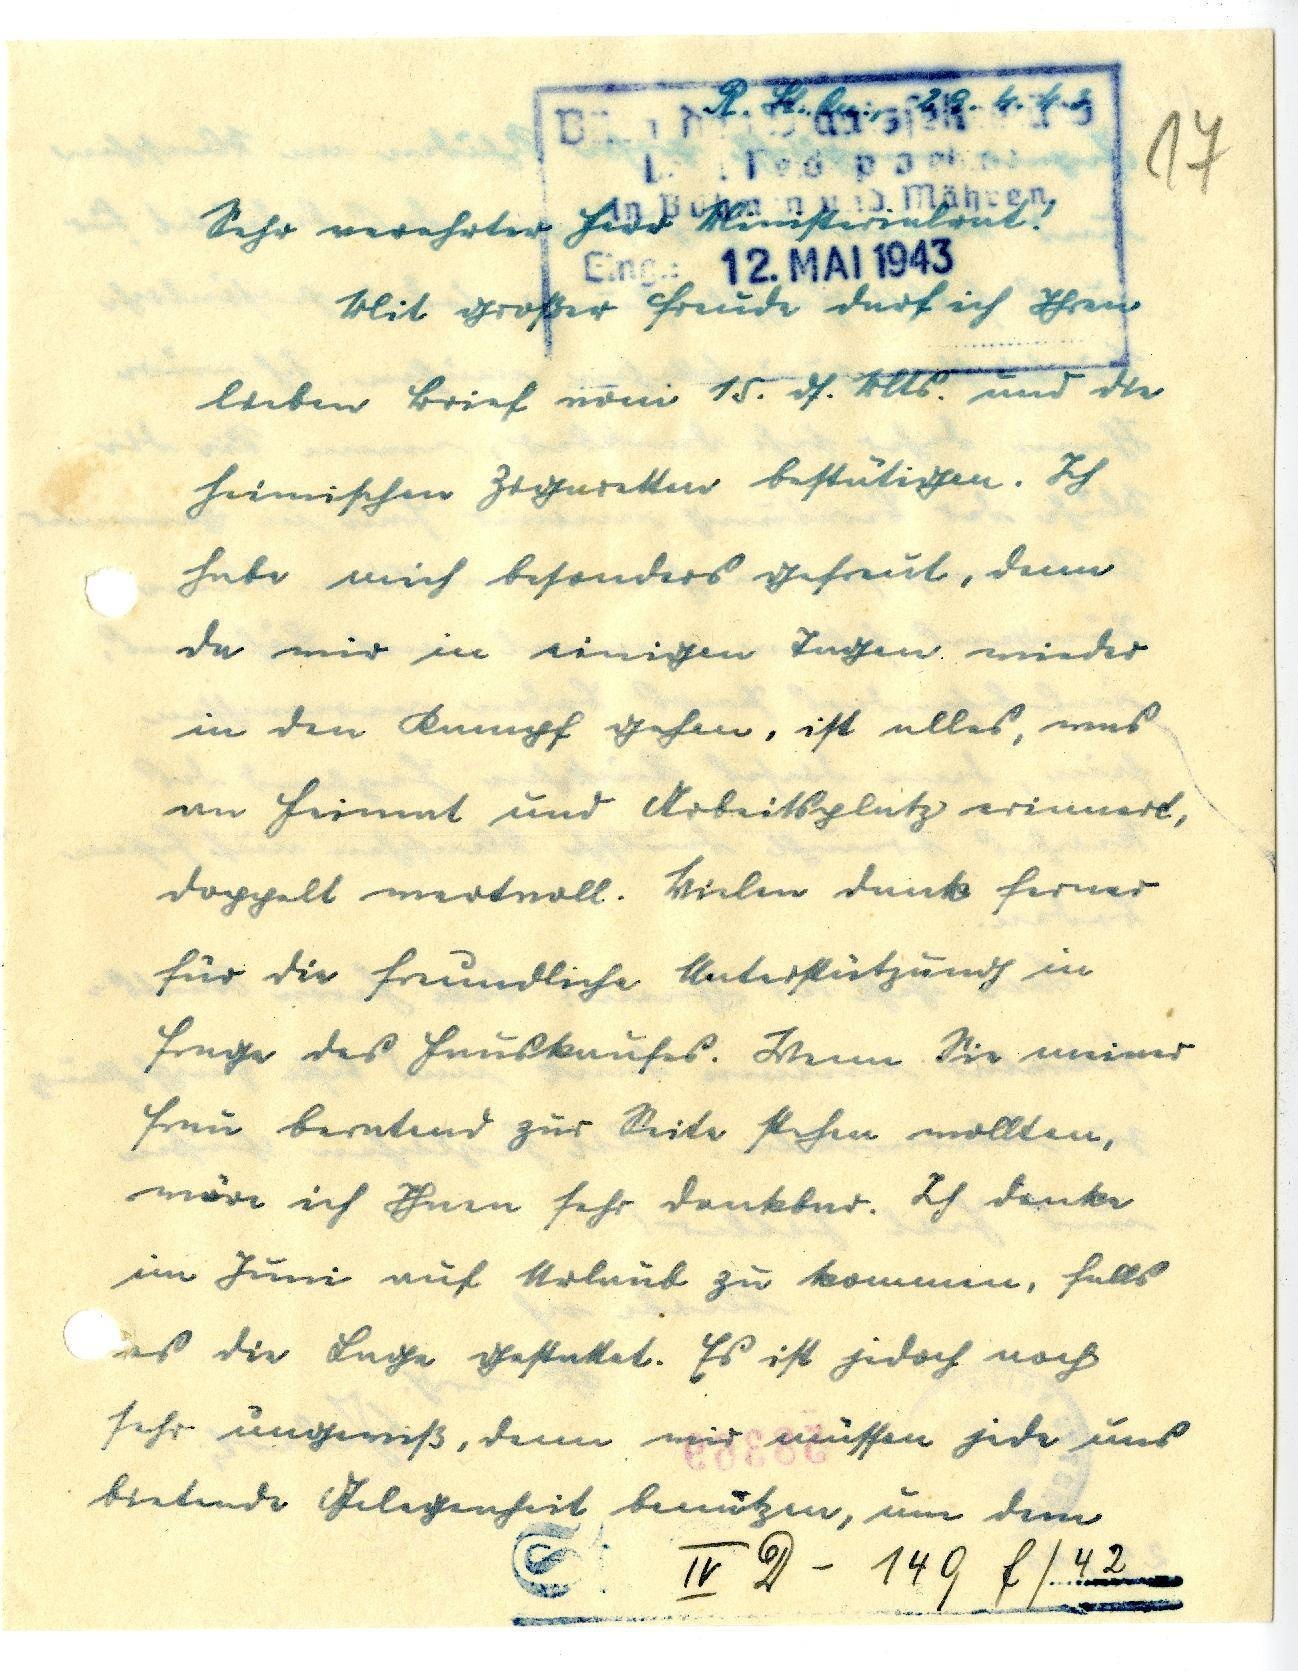 R. St. Qu., 29.4.43
17
Büro des Staatssekretärs
beim Reichsprotektor
in Böhmen und Mähren
Eing.: 12. MAI 1943
Sehr verehrter Herr Ministerialrat!
Mit großer Freude darf ich Ihren
lieben Brief vom 15. ds. Mts. und die
heimischen Zigaretten bestätigen. Ich
habe mich besonders gefreut, denn
da wir in einigen Tagen wieder
in den Kampf gehen, ist alles, was
an Heimat und Arbeitsplatz erinnert,
doppelt wertvoll. Vielen Dank ferner
für die freundliche Unterstützung in
Frage des Hauskaufes. Wenn Sie meiner
Frau beratend zur Seite stehen wollten,
wäre ich Ihnen sehr dankbar. Ich denke
im Juni auf Urlaub zu kommen, falls
es die Lage gestattet. Es ist jedoch noch
sehr ungewiß, denn wir müssen jede uns
bietende Gelegenheit benützen, um dem
St.S. IV D - 149 f/42